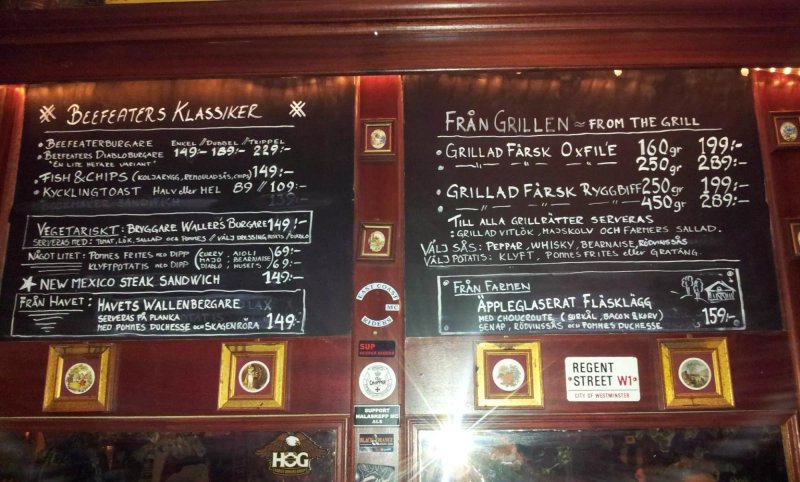 BEEFEATERS KLASSIKER
• BEEFEATERBURGARE ENKEL // DUBBEL // TRIPPEL
• BEEFEATERS DIABLOBURGARE 149:- 189:- 229:-
"EN LITE HETARE VARIANT"
FISH & CHIPS (KOLJARYGG, REMOULADSÅS, CHIPS) 149:-
• KYCKLINGTOAST HALV eller HEL 89 // 109:-
VEGETARISKT: BRYGGARE WALLER'S BURGARE 149:-
SERVERAS MED: TOMAT, LÖK, SALLAD OCH POMMES // VÄLJ DRESSING, MUSETS / DIABLO
NÅGOT LITET: POMMES FRITES MED DIPP (CURRY, AIOLI 69:-
KLYFTPOTATIS MED DIPP MAJO, BEARNAISE 69:-
DIABLO, MUSETS)
NEW MEXICO STEAK SANDWICH 149:-
FRÅN HAVET: HAVETS WALLENBERGARE
SERVERAS PÅ PLANKA
MED POMMES DUCHESSE OCH SKAGENRÖRA 149:-
FRÅN GRILLEN ~ FROM THE GRILL
• GRILLAD FÄRSK OXFILÉ 160 gr 199:-
250 gr 289:-
• GRILLAD FÄRSK RYGGBIFF 250 gr 199:-
450 gr 289:-
TILL ALLA GRILLRÄTTER SERVERAS
: GRILLAD VITLÖK, MAJSKOLV OCH FARMERS SALLAD.
VÄLJ SÅS: PEPPAR, WHISKY, BEARNAISE, RÖDVINSSÅS
VÄLJ POTATIS: KLYFT, POMMES FRITES eller GRATÄNG.
FRÅN FARMEN
ÄPPLEGLASERAT FLÄSKLÄGG
MED CHOUCROUTE (SURKÅL, BACON & KORV)
SENAP, RÖDVINSSÅS OCH POMMES DUCHESSE 159:-
EAST COAST
MC
RIDERS
SUP
CHOPPER
SUPPORT
MALASKEPP MC
ALS
REGENT
STREET W1
CITY OF WESTMINSTER
HOG